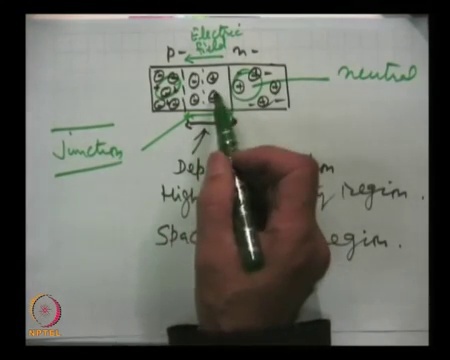 Electric
field
p- n-
neutral
Junction
Dep
High region.
Spac egion.
NPTEL